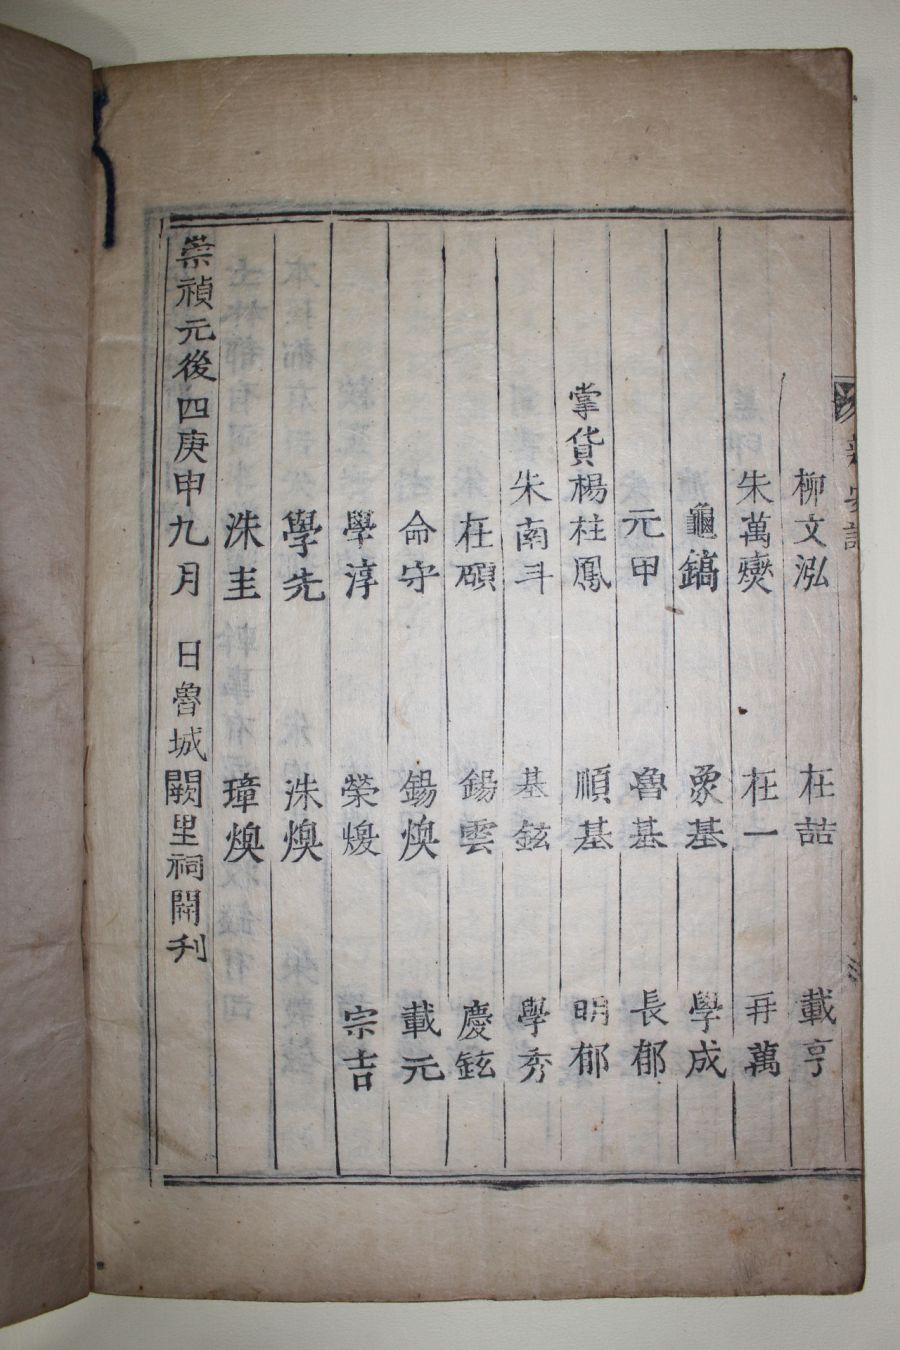 柳文泓 在喆 載亨
朱萬㷼 在一 再萬
龜鎬 象基 學成
元甲 魯基 長郁
掌貨 楊柱鳳 順基 明郁
朱南斗 基鉉 學秀
在碩 錫雲 慶鉉
命守 錫煥 載元
學淳 榮煖 宗吉
學先 洙煥
洙圭 璋煥
崇禎元後四庚申九月 日魯城闕里祠開刋